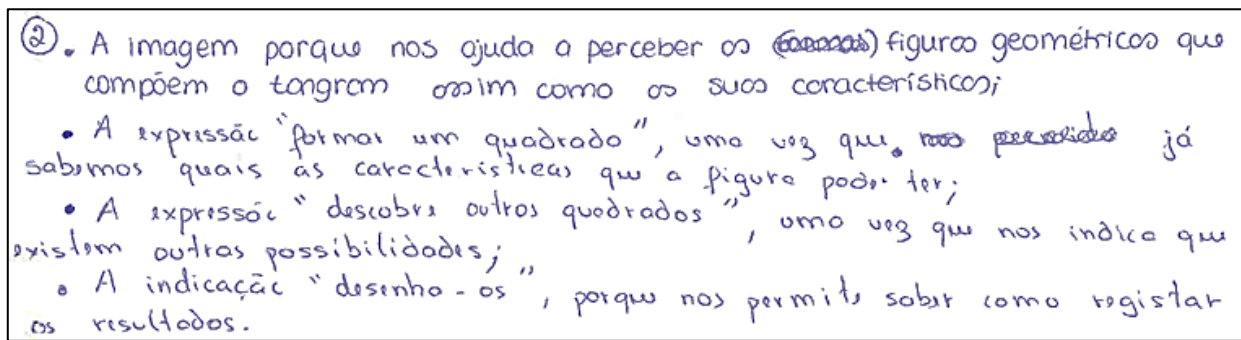 ②. A imagem porque nos ajuda a perceber as figuras geométricas que
compõem o tangram assim como as suas características;
• A expressão "formar um quadrado", uma vez que já
sabemos quais as características que a figura poder ter;
• A expressão "descobre outros quadrados", uma vez que nos indica que
existem outras possibilidades;
• A indicação "desenha-os", porque nos permite saber como registar
os resultados.